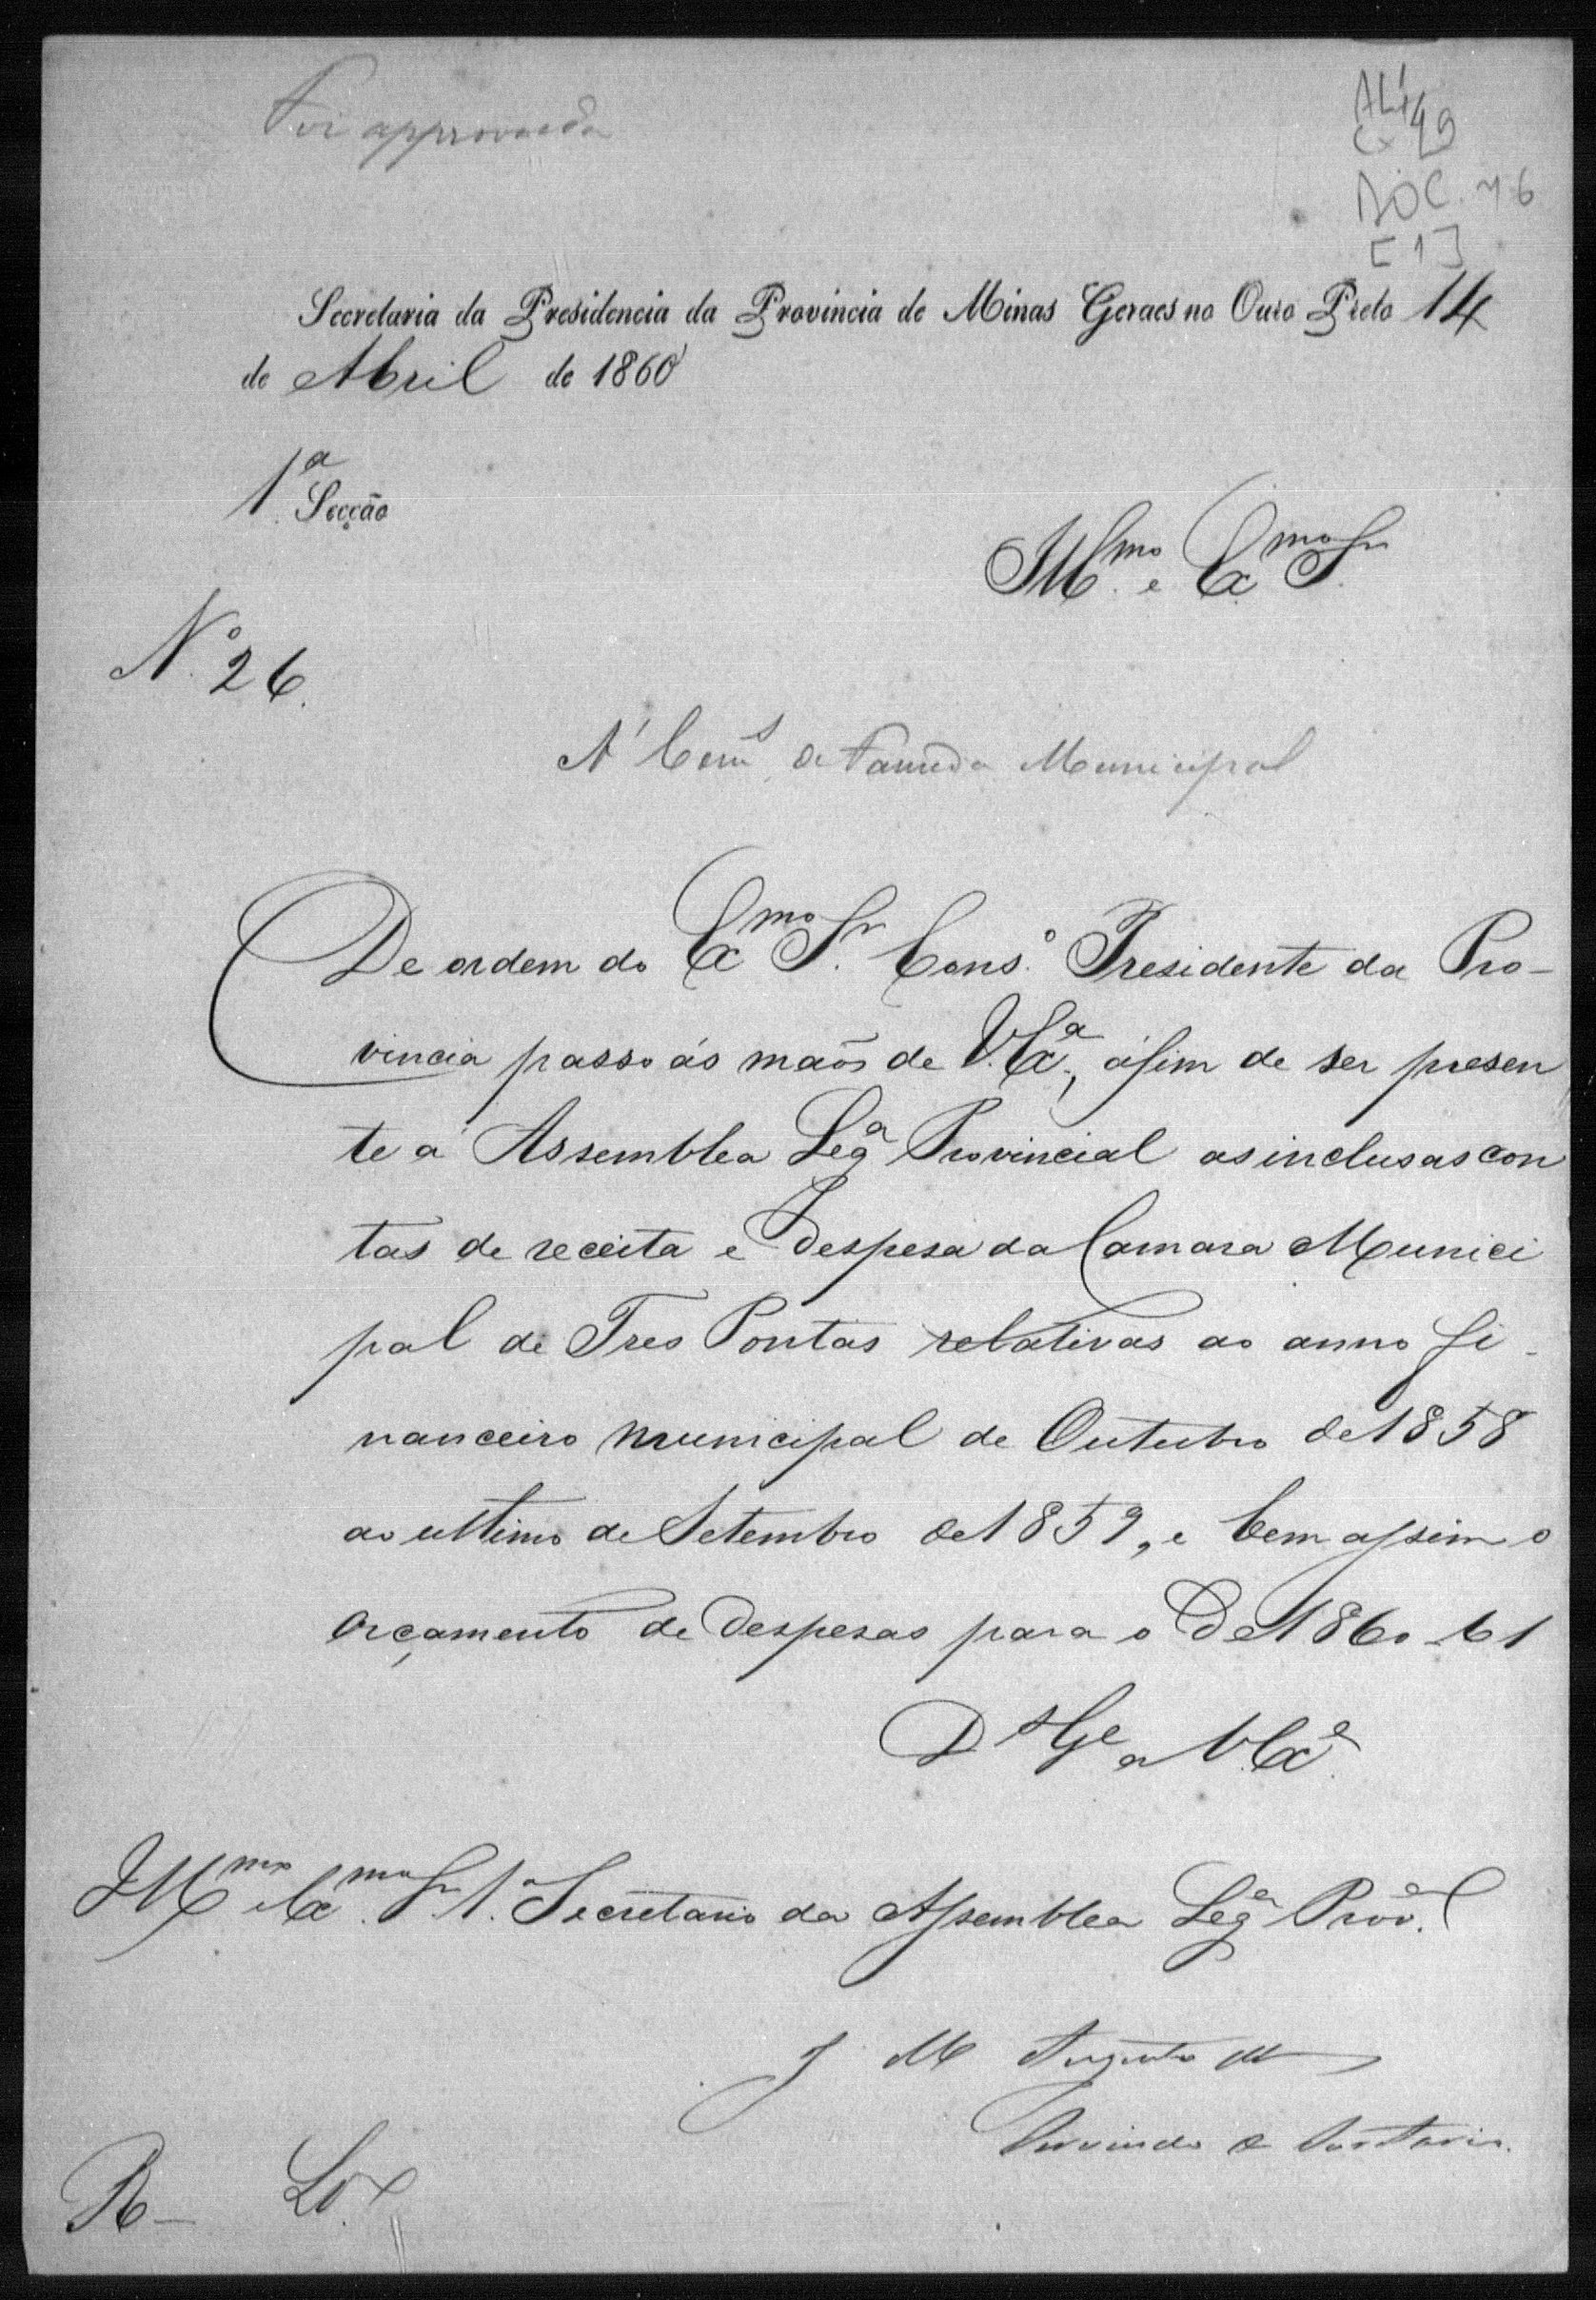 Foi approvada
AL 1
Cx 49
DOC. 76
[1]
Secretaria da Presidencia da Provincia de Minas Geraes no Ouro Preto 14
de Abril de 1860
1ª Secção
Illmo. e Exmo. Sr.
Nº 26.
A' Comm de Fazenda Municipal
De ordem do Exmo. Sr. Cons.º Presidente da Pro-
vincia passo ás maõs de V. Exª., áfim de ser presen
te á Assemblea Legª Provincial as inclusas con
tas de receita e despesa da Camara Munici
pal de Tres Pontas relativas ao anno fi-
nanceiro municipal de Outubro de 1858
ao ultimo de Setembro de 1859, e bem assim o
orçamento de despesas para o de 1860-61
Ds Ge a V. Exª.
Illmo. e Exmo. Sr. 1.º Secretario da Assemblea Legª Provªl.
J M Augusto
Servindo de Secretario.
R-